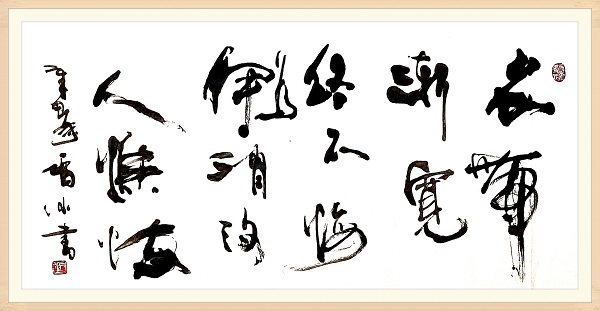 衣帶
漸寬
終不悔
為伊消得
人憔悴
書